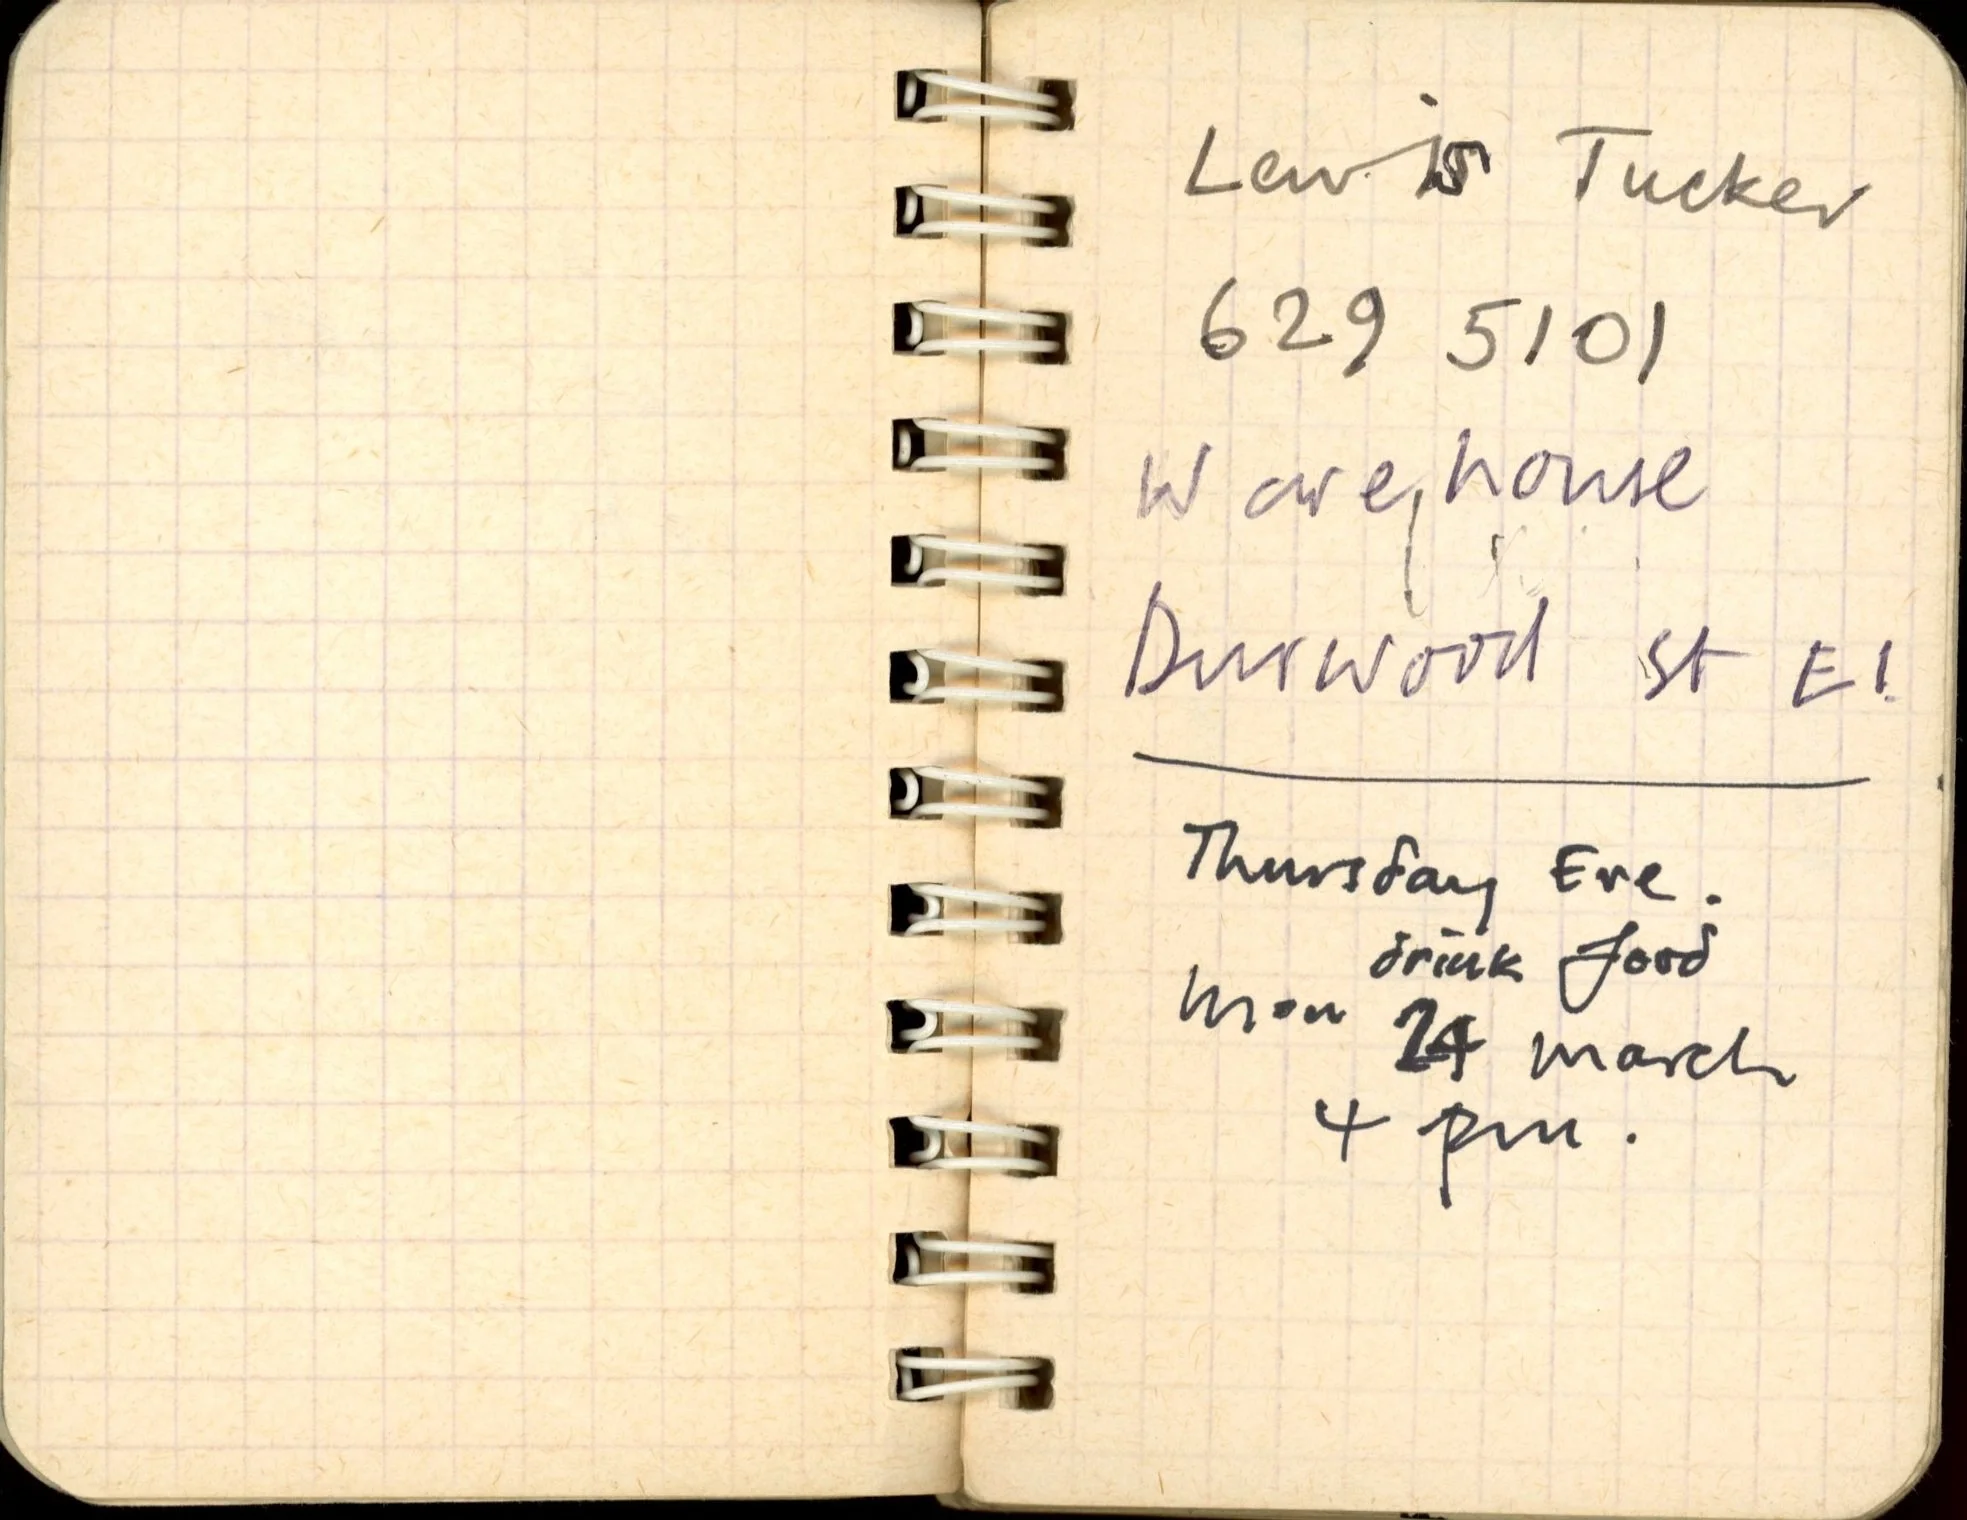 Lewis Tucker
629 5101
Warehouse
Durwood St E1
Thursday Eve.
drink food
Mon 24 march
4 pm.